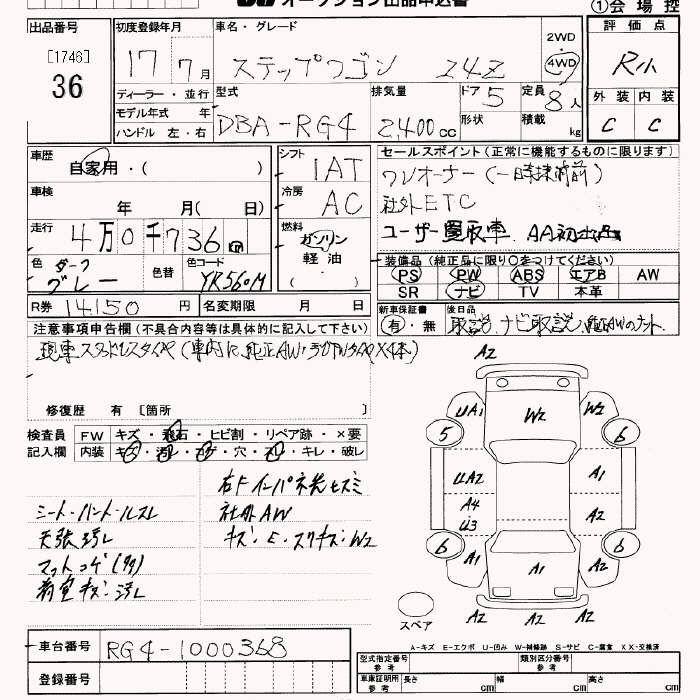 オークション出品申込書
①会場控
出品番号
[1746]
36
初度登録年月
17 7月
車名・グレード
ステップワゴン 24Z
2WD
4WD
評価点
R小
外装 内装
C C
ディーラー・並行
モデル年式 年
ハンドル 左・右
型式
DBA-RG4
排気量
2,400cc
ドア 5
形状
定員 8人
積載 kg
車歴
自家用・( )
車検
年 月( 日)
走行
4万0千736km
色 ダーク
グレー
色替
色コード
YR560M
シフト
IAT
冷房
AC
燃料
ガソリン
軽油
( )
セールスポイント(正常に機能するものに限ります)
ワンオーナー(一時抹消前)
社外ETC
ユーザー買取車 AA初出品
装備品(純正品に限り○をつけてください)
PS PW ABS エアB AW
SR ナビ TV 本革
R券 14150円
名変期限 月 日
新車保証書
有・無
後日品
取説、ナビ取説、純正AWのナット
注意事項申告欄(不具合内容等は具体的に記入して下さい)
現車スタッドレスタイヤ(車内に純正AW・ラジアルタイヤX4本)
修復歴 有 [箇所 ]
検査員
記入欄
FW キズ・飛石・ヒビ割・リペア跡・×要
内装 キズ・汚レ・コゲ・穴・スレ・キレ・破レ
シート・ハンドルスレ
天張汚レ
マットコゲ(タタ)
荷室キズ・汚レ
右Fインパネ光ヒズミ
社外AW
キズ・E・スリキズ・W2
A2
UA1 W2 W2
5 6
UA2 A1
A4 A2
U3
6 6
A1 A1 A2
A2 A2 A2
スペア
車台番号 RG4-1000368
登録番号
A-キズ E-エクボ U-凹み W-補修跡 S-サビ C-腐食 XX-交換済
型式指定番号
参考
類別区分番号
参考
車庫証明用
参考
長さ cm 幅 cm 高さ cm